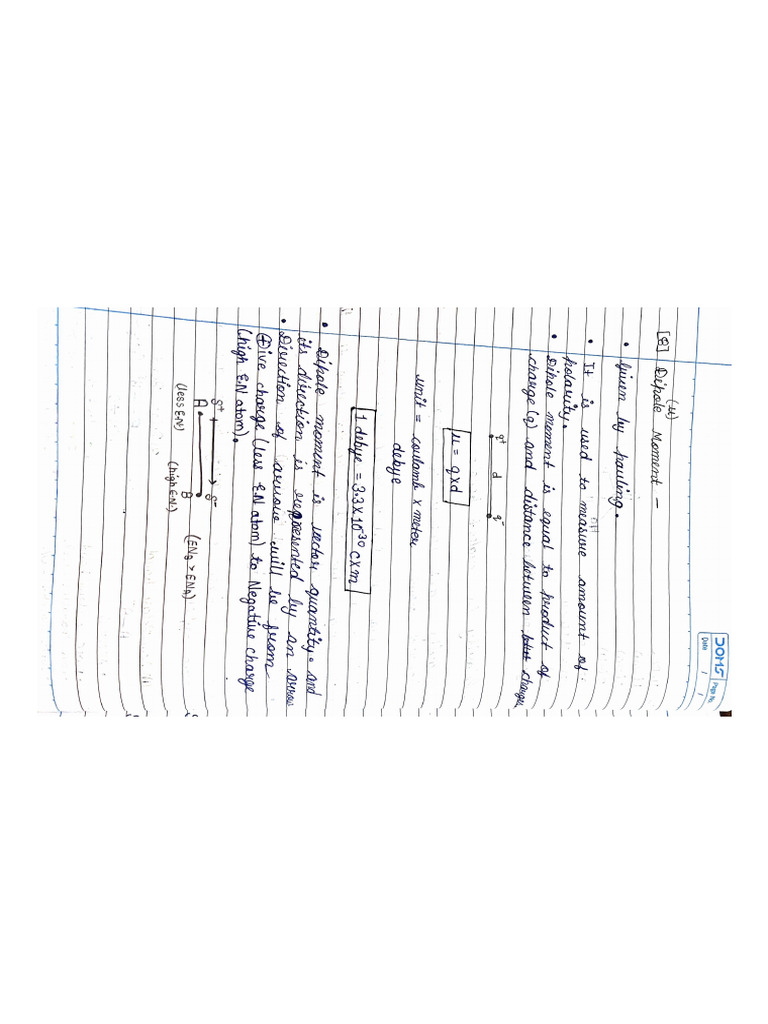 DOMS
Page No.
Date / /
(μ)
[8] Dipole Moment –
• Given by pauling.
• It is used to measure amount of
polarity.
• Dipole moment is equal to product of
charge (q) and distance between charges
q+ d q-
μ = q×d
unit = coulamb × meter
debye
1 debye = 3.3×10⁻³⁰ C×m
• Dipole moment is vector quantity. and
its direction is represented by an arrow
• Direction of arrow will be from
⊕ive charge (less EN atom) to Negative charge
(high EN atom).
δ+ δ-
A B (ENB > ENA)
(less EN) (high EN)